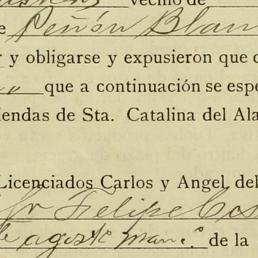 vecino de
e Peñón Blan
y obligarse y expusieron que d
que a continuación se espe
iendas de Sta. Catalina del Ala
Licenciados Carlos y Angel del
Felipe Cos
de agosto de la